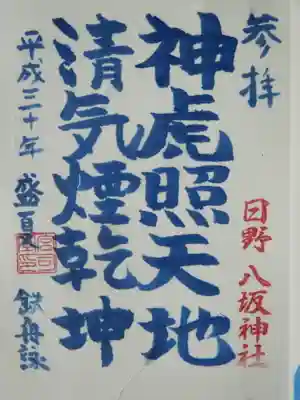 参拝
日野 八坂神社
神虎照天地
清気煙乾坤
平成三十年 盛夏
鉄舟詠